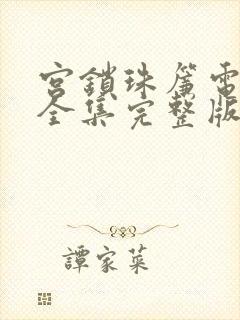 宮鎖珠簾電
全集完整版
譚家菜